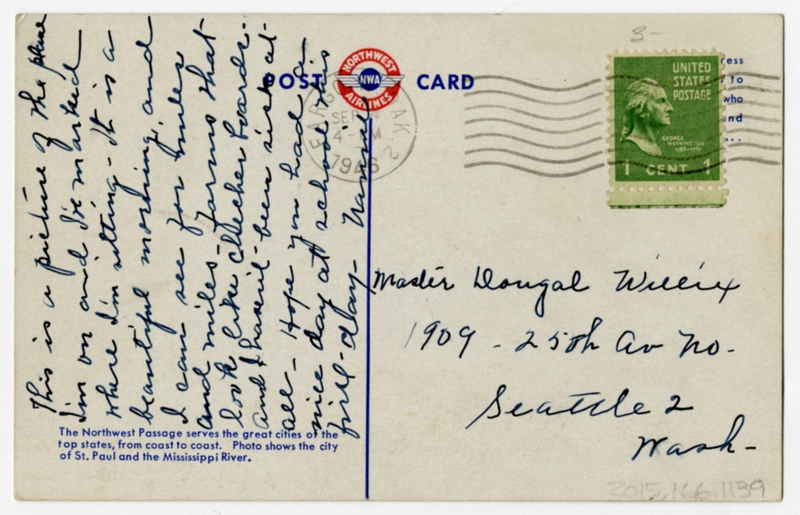 This is a picture of the plane
I'm on and I've marked
where I'm sitting - It is a
beautiful morning and
I can see for miles
and miles - farms that
look like checker boards -
and I haven't been sick at
all - Hope you had a
nice day at school this
first day -
The Northwest Passage serves the great cities of the
top states, from coast to coast. Photo shows the city
of St. Paul and the Mississippi River.
POST CARD
NORTHWEST
NWA
AIRLINES
FARGO
SEP
4 - PM
1946
3-
UNITED
STATES
POSTAGE
GEORGE
WASHINGTON
1 CENT 1
ress
to
who
and
...
Master Dougal Willix
1909 - 25th Av No.
Seattle 2
Wash -
2015.166.1139